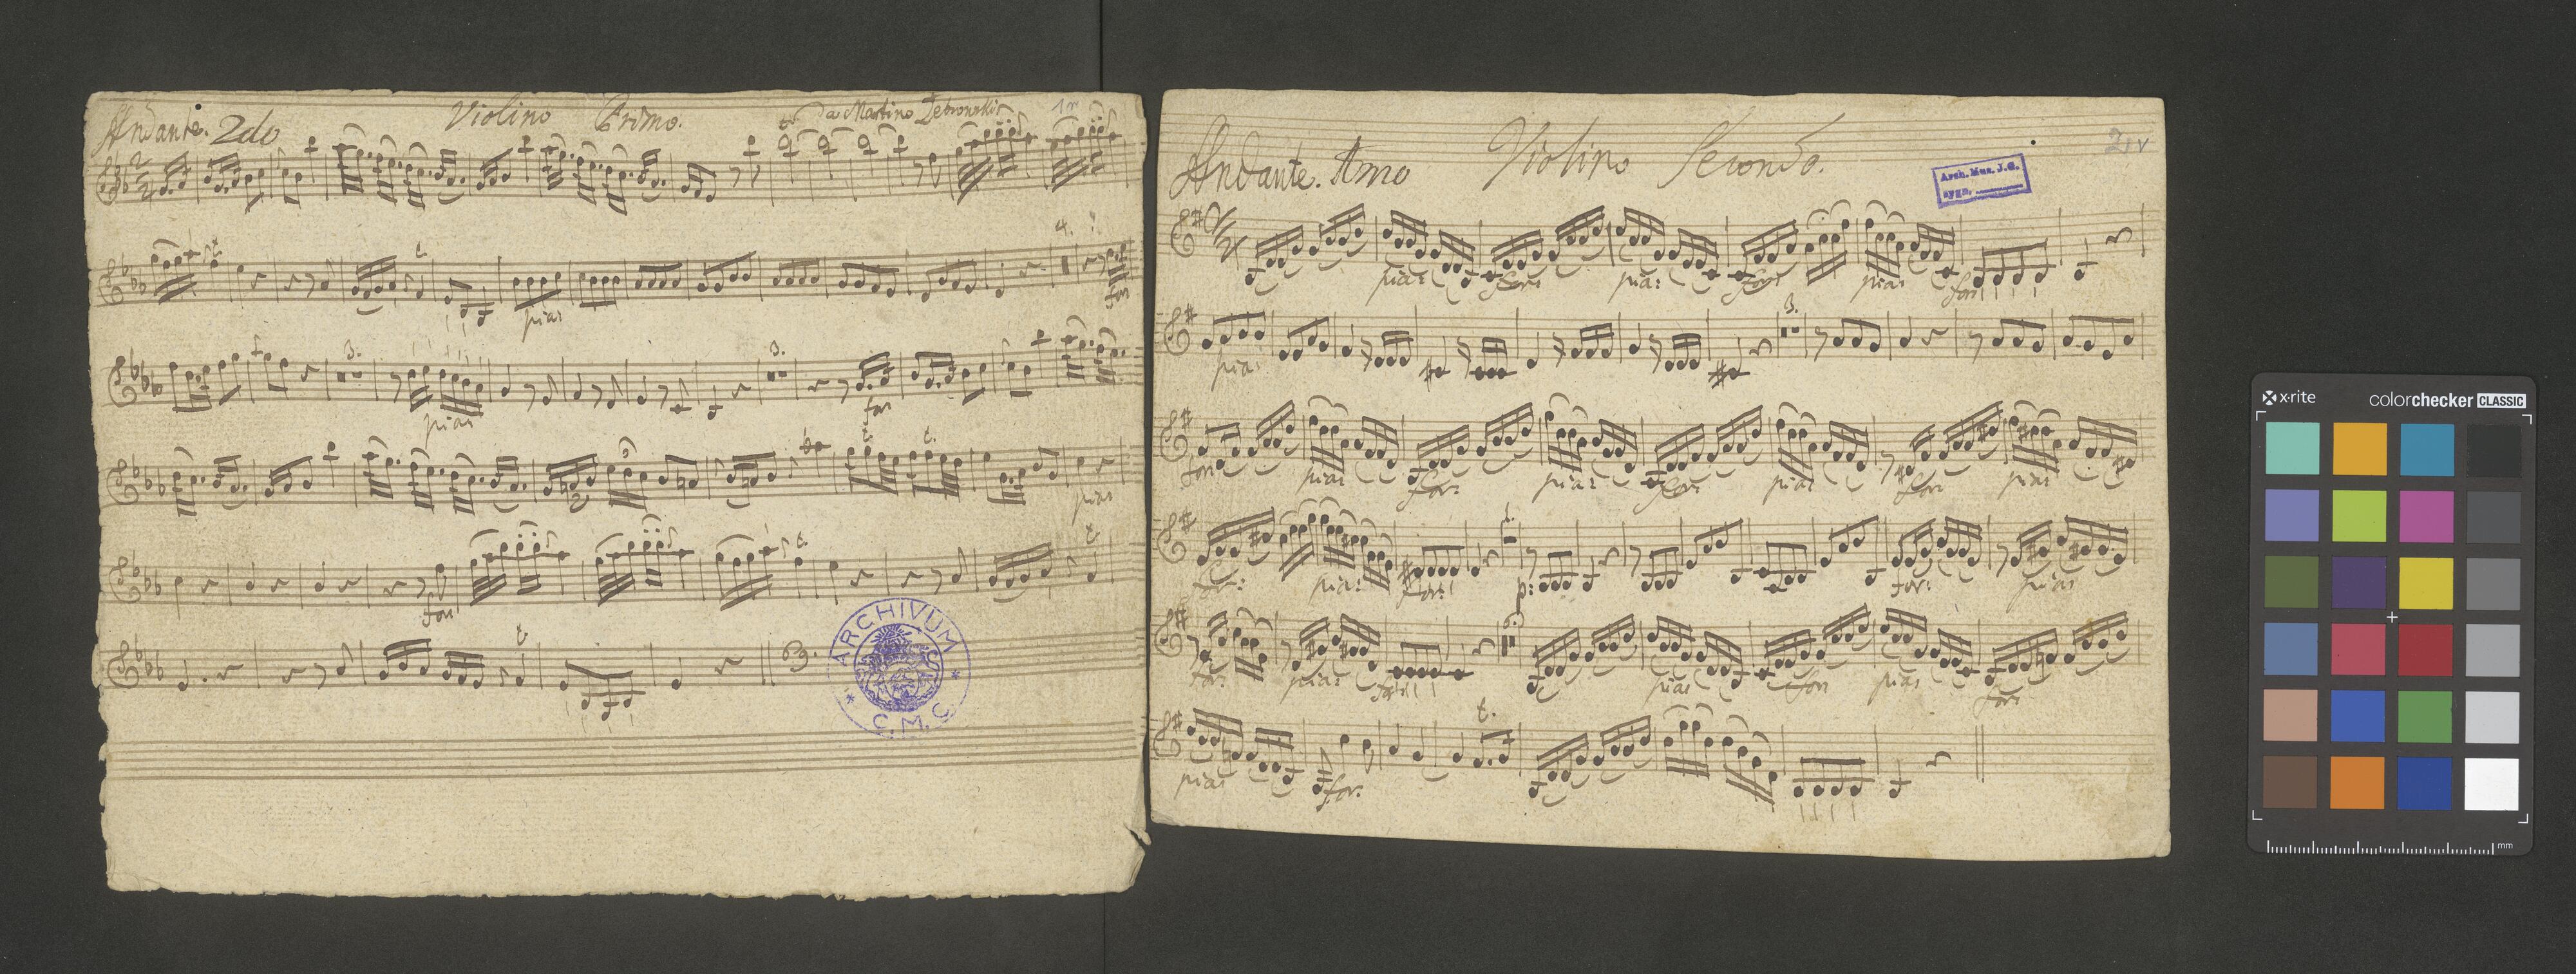 Andante. 2do Violino Primo. Da Martino Zebrowski 1r
2
4
t.
t. t. 4.
pia: for
3. 3.
pia: for
3
t. t.
pia:
t. t.
for
t.
ARCHIVUM
C.M.C.
Andante. Imo Violino Secondo. 2rv
Arch. Muz. J.G.
sygn.
2
4
pia: for: pia: for: pia: for:
3.
pia:
for: pia: for: pia: for: pia: for: pia:
1.
for: pia: for: p: for: pia:
for: pia: for: pia: for: pia: for:
t.
pia: for:
x-rite colorchecker CLASSIC
mm